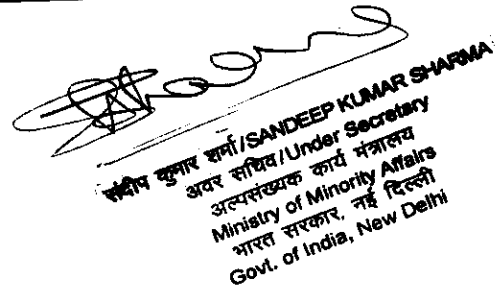 संदीप कुमार शर्मा/SANDEEP KUMAR SHARMA
अवर सचिव/Under Secretary
अल्पसंख्यक कार्य मंत्रालय
Ministry of Minority Affairs
भारत सरकार, नई दिल्ली
Govt. of India, New Delhi